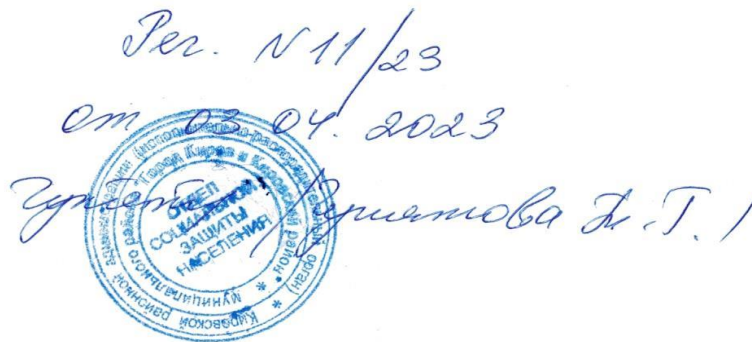 Рег. N 11/23
от 03.04.2023
Н.Т. /
Кировской районной администрации (исполнительно-распорядительный орган)
муниципального района "Город Киров и Кировский район"
ОТДЕЛ
СОЦИАЛЬНОЙ
ЗАЩИТЫ
НАСЕЛЕНИЯ